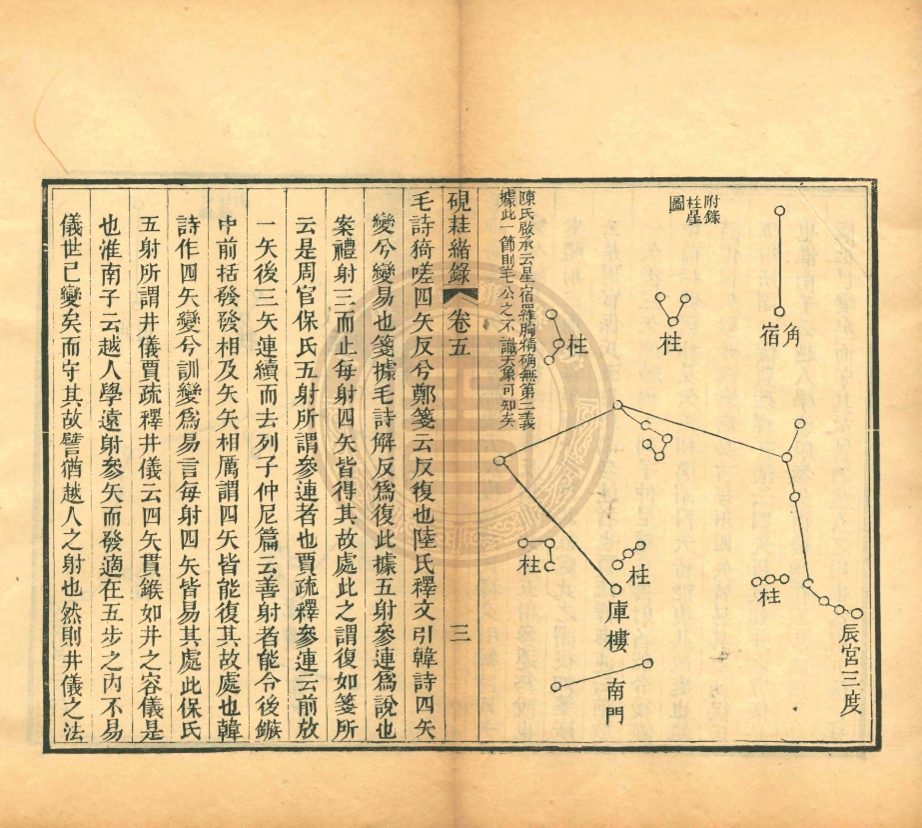 附錄
柱星
圖
角
宿
柱
柱
柱
柱
柱
庫樓
南門
辰宮三度
陳氏啟承云星宿羅胸精确無第二義
據此一節則毛公之不識天象可知矣
硯耕緒錄 卷五 三
毛詩猗嗟四矢反兮鄭箋云反復也陸氏釋文引韓詩四矢
變兮變易也箋據毛詩解反為復此據五射參連為說也
案禮射三而止每射四矢皆得其故處此之謂復如箋所
云是周官保氏五射所謂參連者也賈疏釋參連云前放
一矢後三矢連續而去列子仲尼篇云善射者能令後鏃
中前括發發相及矢矢相厲謂四矢皆能復其故處也韓
詩作四矢變兮訓變為易言每射四矢皆易其處此保氏
五射所謂井儀賈疏釋井儀云四矢貫鏃如井之容儀是
也淮南子云越人學遠射參矢而發適在五步之內不易
儀世已變矣而守其故譬猶越人之射也然則井儀之法